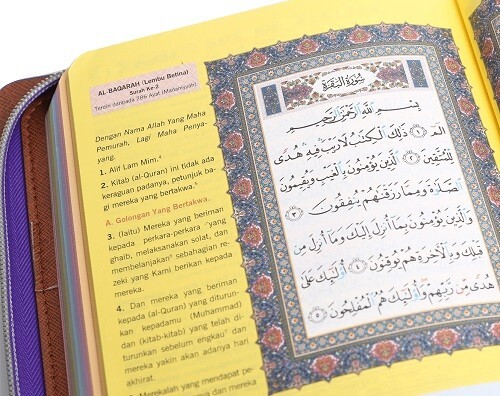 AL-BAQARAH (Lembu Betina)
Surah Ke-2
Terdiri daripada 286 Ayat (Madaniyyah)
Dengan Nama Allah Yang Maha
Pemurah, Lagi Maha Penya-
yang.
1. Alif Lam Mim.
2. Kitab (al-Quran) ini tidak ada
keraguan padanya, petunjuk ba-
gi mereka yang bertakwa.
A. Golongan Yang Bertakwa.
3. (Iaitu) Mereka yang beriman
kepada perkara-perkara yang
ghaib, melaksanakan solat, dan
membelanjakan sebahagian re-
zeki yang Kami berikan kepada
mereka.
4. Dan mereka yang beriman
kepada (al-Quran) yang diturun-
kan kepadamu (Muhammad)
dan (kitab-kitab) yang telah di-
turunkan sebelum engkau dan
mereka yakin akan adanya hari
akhirat.
Merekalah yang mendapat pe-
dan mereka
سورة البقرة
بسم الله الرحمن الرحيم
الم ١ ذلك الكتب لا ريب فيه هدى
للمتقين ٢ الذين يؤمنون بالغيب ويقيمون
الصلوة ومما رزقنهم ينفقون ٣
والذين يؤمنون بما أنزل إليك وما أنزل من
قبلك وبالآخرة هم يوقنون ٤ أولئك على
هدى من ربهم وأولئك هم المفلحون ٥